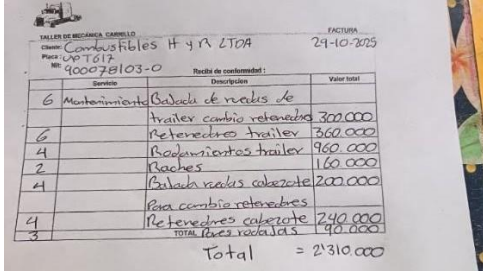 TALLER DE MECÁNICA CARRILLO
FACTURA
Cliente: Combustibles H y R LTDA 29-10-2025
Placa: UPT617
Nit: 900078103-0
Recibí de conformidad :
Servicio Descripcion Valor total
6 Mantenimiento Bajada de ruedas de
trailer cambio retenedres 300.000
6 Retenedres trailer 360.000
4 Rodamientos trailer 960.000
2 Baches 160.000
4 Bajada ruedas cabezote 200.000
Para cambio retenedres
4 Retenedres cabezote 240.000
3 TOTAL Pares rodajas 90.000
Total = 2'310.000